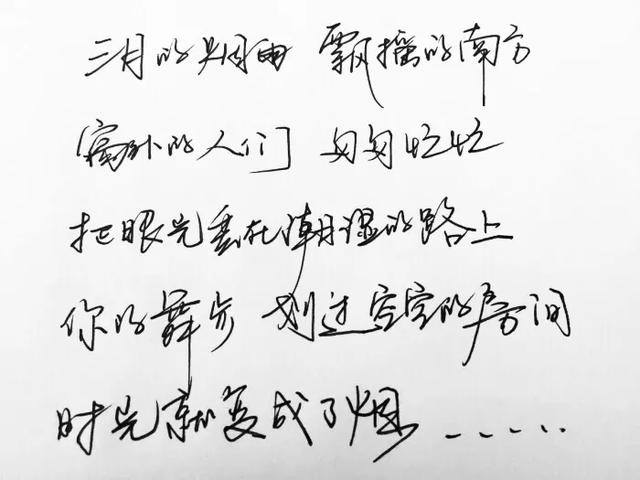 三月的烟雨 飘摇的南方
窗外的人们 匆匆忙忙
把眼光丢在潮湿的路上
你的舞步 划过空空的房间
时光就变成了烟......